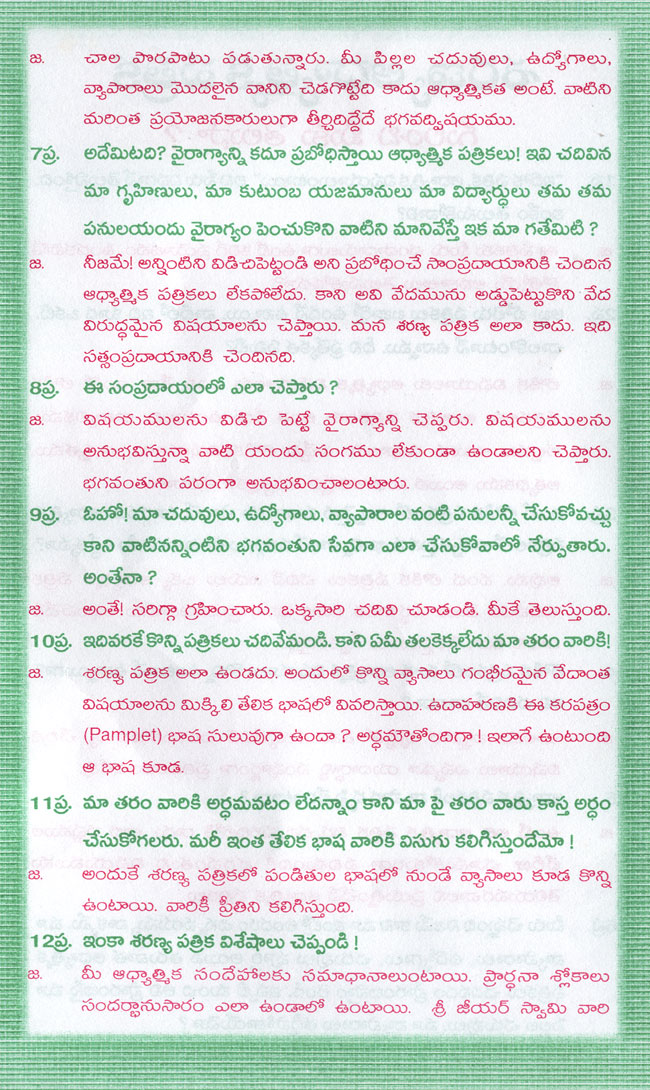 జ. చాల పొరపాటు పడుతున్నారు. మీ పిల్లల చదువులు, ఉద్యోగాలు,
వ్యాపారాలు మొదలైన వానిని చెడగొట్టేది కాదు ఆధ్యాత్మికత అంటే. వాటిని
మరింత ప్రయోజనకారులుగా తీర్చిదిద్దేదే భగవద్విషయము.
7ప్ర. అదేమిటది? వైరాగ్యాన్ని కదూ ప్రబోధిస్తాయి ఆధ్యాత్మిక పత్రికలు! ఇవి చదివిన
మా గృహిణులు, మా కుటుంబ యజమానులు మా విద్యార్థులు తమ తమ
పనులయందు వైరాగ్యం పెంచుకొని వాటిని మానివేస్తే ఇక మా గతేమిటి ?
జ. నీజమే! అన్నింటిని విడిచిపెట్టండి అని ప్రబోధించే సాంప్రదాయానికి చెందిన
ఆధ్యాత్మిక పత్రికలు లేకపోలేదు. కాని అవి వేదమును అడ్డుపెట్టుకొని వేద
విరుద్ధమైన విషయాలను చెప్తాయి. మన శరణ్య పత్రిక అలా కాదు. ఇది
సత్సంప్రదాయానికి చెందినది.
8ప్ర. ఈ సంప్రదాయంలో ఎలా చెప్తారు ?
జ. విషయములను విడిచి పెట్టే వైరాగ్యాన్ని చెప్పరు. విషయములను
అనుభవిస్తున్నా వాటి యందు సంగము లేకుండా ఉండాలని చెప్తారు.
భగవంతుని పరంగా అనుభవించాలంటారు.
9ప్ర. ఓహో! మా చదువులు, ఉద్యోగాలు, వ్యాపారాల వంటి పనులన్నీ చేసుకోవచ్చు
కాని వాటినన్నింటిని భగవంతుని సేవగా ఎలా చేసుకోవాలో నేర్పుతారు.
అంతేనా ?
జ. అంతే! సరిగ్గా గ్రహించారు. ఒక్కసారి చదివి చూడండి. మీకే తెలుస్తుంది.
10ప్ర. ఇదివరకే కొన్ని పత్రికలు చదివేమండి. కాని ఏమీ తలకెక్కలేదు మా తరం వారికి!
జ. శరణ్య పత్రిక అలా ఉండదు. అందులో కొన్ని వ్యాసాలు గంభీరమైన వేదాంత
విషయాలను మిక్కిలి తేలిక భాషలో వివరిస్తాయి. ఉదాహరణకి ఈ కరపత్రం
(Pamplet) భాష సులువుగా ఉందా ? అర్ధమౌతోందిగా ! ఇలాగే ఉంటుంది
ఆ భాష కూడ.
11ప్ర. మా తరం వారికి అర్ధమవటం లేదన్నాం కాని మా పై తరం వారు కాస్త అర్ధం
చేసుకోగలరు. మరీ ఇంత తేలిక భాష వారికి విసుగు కలిగిస్తుందేమో !
జ. అందుకే శరణ్య పత్రికలో పండితుల భాషలో నుండే వ్యాసాలు కూడ కొన్ని
ఉంటాయి. వారికీ ప్రీతిని కలిగిస్తుంది.
12ప్ర. ఇంకా శరణ్య పత్రిక విశేషాలు చెప్పండి !
జ. మీ ఆధ్యాత్మిక సందేహాలకు సమాధానాలుంటాయి. ప్రార్ధనా శ్లోకాలు
సందర్భానుసారం ఎలా ఉండాలో ఉంటాయి. శ్రీ జీయర్ స్వామి వారి